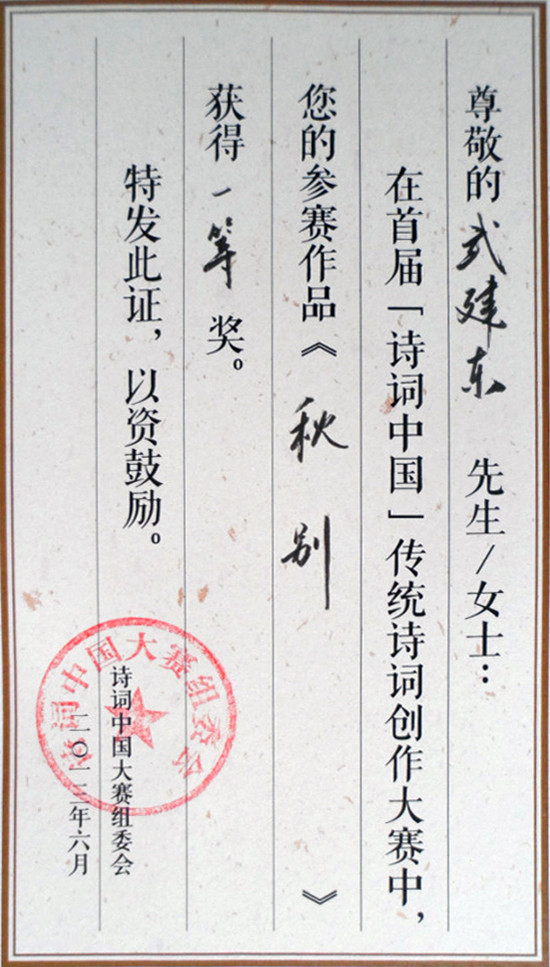 尊敬的武建东 先生/女士：
在首届「诗词中国」传统诗词创作大赛中，
您的参赛作品《秋别》
获得一等奖。
特发此证，以资鼓励。
诗词中国大赛组委会
二〇一三年六月
诗词中国大赛组委会